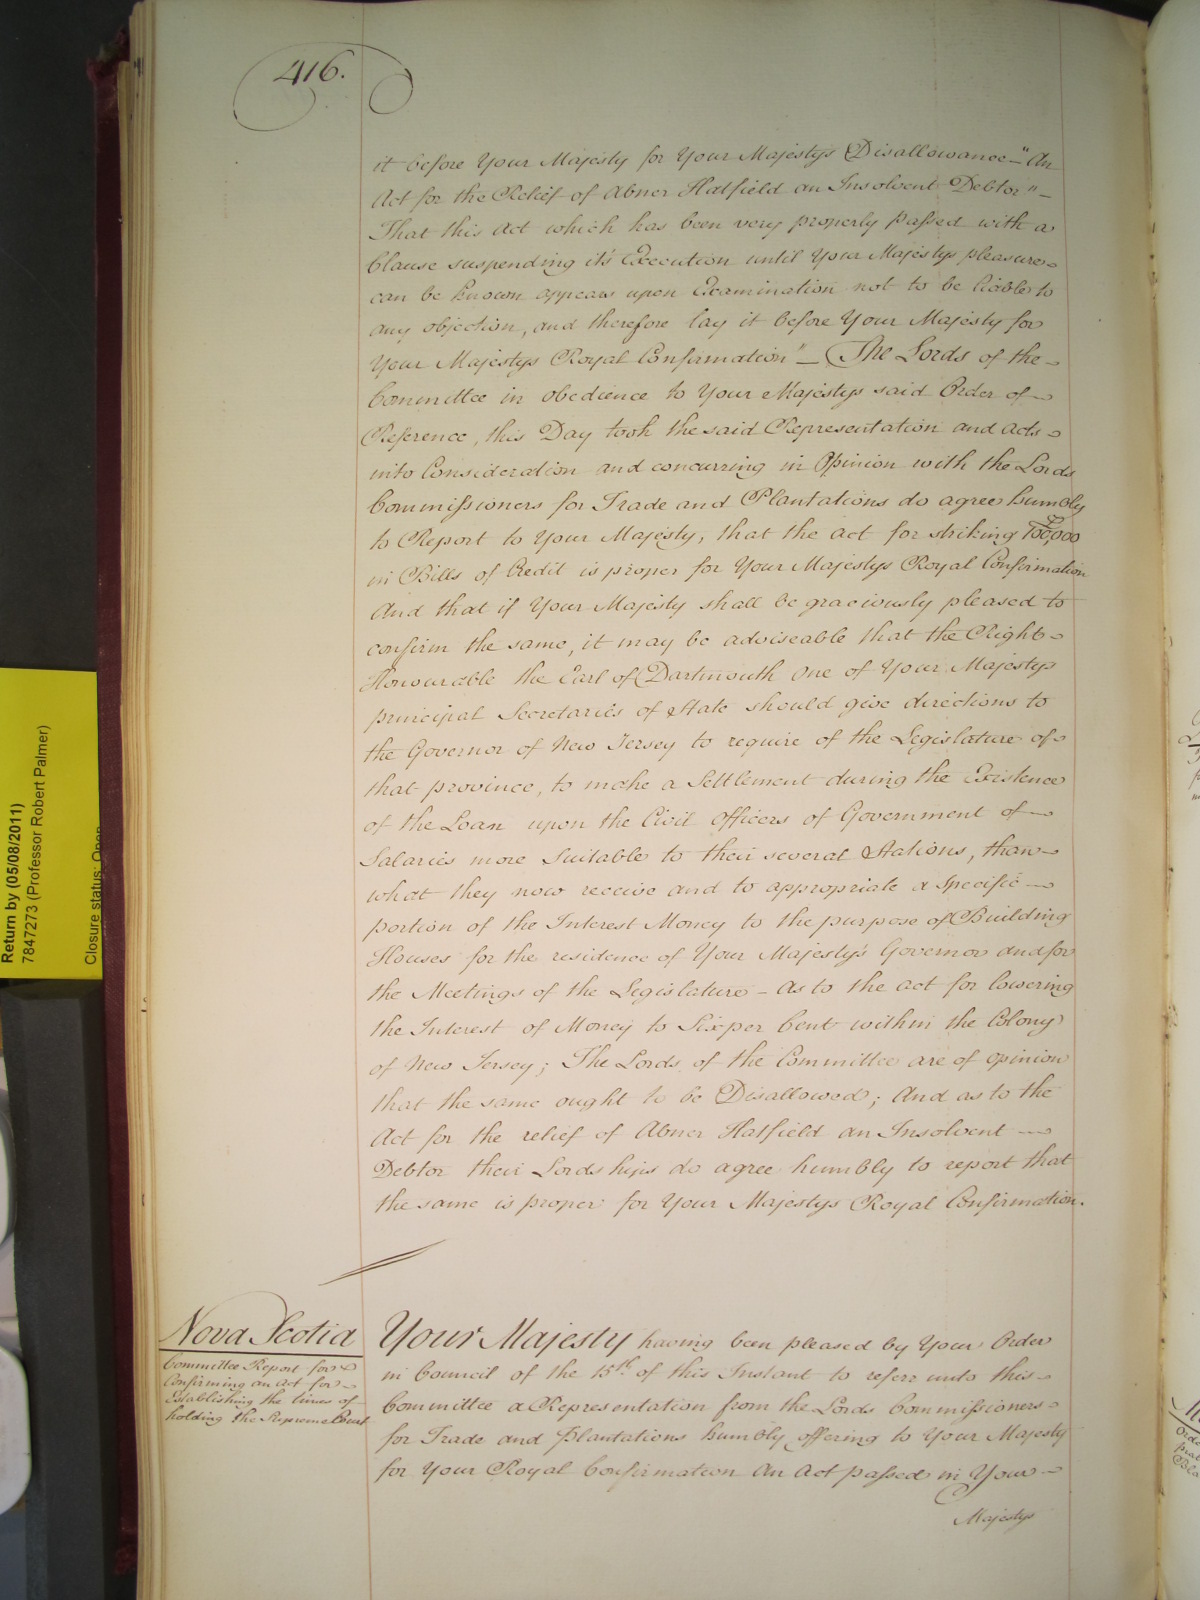 416.
it before Your Majesty for Your Majestys Disallowance—"An
Act for the Relief of Abner Hatfield an Insolvent Debtor"—
That this Act which has been very properly passed with a
Clause suspending it's Execution until Your Majestys pleasure
can be known appears upon Examination not to be liable to
any objection, and therefore lay it before Your Majesty for
Your Majestys Royal Confirmation"— The Lords of the
Committee in obedience to Your Majestys said Order of
Reference, this Day took the said Representation and Acts
into Consideration and concurring in Opinion with the Lords
Commissioners for Trade and Plantations do agree humbly
to Report to Your Majesty, that the Act for striking £100,000
in Bills of Credit is proper for Your Majestys Royal Confirmation
And that if Your Majesty shall be graciously pleased to
confirm the same, it may be adviseable that the Right
Honourable the Earl of Dartmouth one of Your Majestys
principal Secretaries of State should give directions to
the Governor of New Jersey to require of the Legislature of
that province, to make a Settlement during the Existence
of the Loan upon the Civil Officers of Government of
Salaries more Suitable to their several Stations, than
what they now receive and to appropriate a Specific
portion of the Interest Money to the purpose of Building
Houses for the residence of Your Majesty's Governor and for
the Meetings of the Legislature — As to the Act for lowering
the Interest of Money to Six per Cent within the Colony
of New Jersey; The Lords of the Committee are of opinion
that the same ought to be Disallowed; And as to the
Act for the relief of Abner Hatfield an Insolvent
Debtor their Lordships do agree humbly to report that
the same is proper for Your Majestys Royal Confirmation.
Nova Scotia
Committee Report for
Confirming an Act for
establishing the times of
holding the Supreme Court
Your Majesty having been pleased by Your Order
in Council of the 15th of this Instant to referr unto this
Committee a Representation from the Lords Commissioners
for Trade and Plantations humbly offering to Your Majesty
for Your Royal Confirmation An Act passed in Your
Majestys
Return by (05/08/2011)
7847273 (Professor Robert Palmer)
Closure status: Open